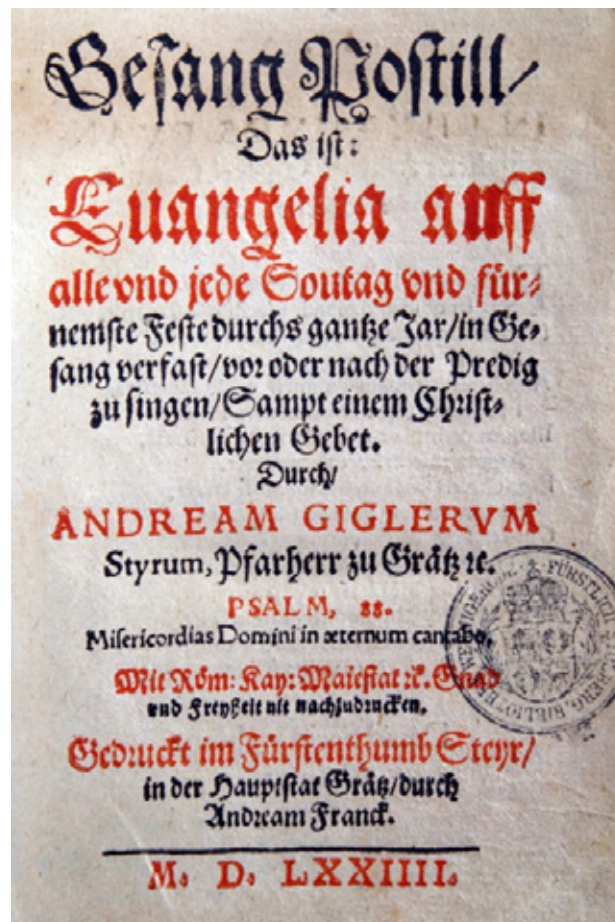 Gesang Postill/
Das ist:
Euangelia auff
alle vnd jede Soutag vnd für-
nemste Feste durchs gantze Jar/in Ge-
sang verfast/vor oder nach der Predig
zu singen/Sampt einem Christ-
lichen Gebet.
Durch/
ANDREAM GIGLERVM
Styrum, Pfarherr zu Grätz ꝛc.
PSALM, 88.
Misericordias Domini in æternum cantabo.
Mit Röm: Kay: Maiestat ꝛc. Gnad
vnd Freyheit nit nachzudrucken.
Gedruckt im Fürstenthumb Steyr/
in der Hauptstat Grätz/durch
Andream Franck.
M. D. LXXIIII.
FÜRSTL
BIBLIOTH